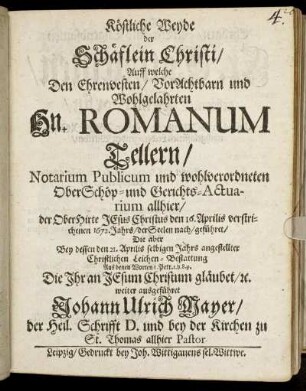 4.
Köstliche Weyde
der
Schäflein Christi/
Auff welche
Den Ehrenvesten/ VorAchtbarn und
Wohlgelahrten
Hn. ROMANUM
Tellern/
Notarium Publicum und wohlverordneten
OberSchöp- und Gerichts-Actua-
rium allhier/
der OberHirte JEsus Christus den 16. Aprilis verstri-
chenen 1672. Jahrs/ der Seelen nach/ geführet/
Die aber
Bey dessen den 21. Aprilis selbigen Jahrs angestellter
Christlichen Leichen-Bestattung
Aus denen Worten 1. Petr. 1. v. 8. 9.
Die Ihr an JEsum Christum gläubet/ ꝛc.
weiter ausgeführet
Johann Ulrich Mayer/
der Heil. Schrifft D. und bey der Kirchen zu
St. Thomas allhier Pastor
Leipzig/ Gedruckt bey Joh. Wittigauens sel. Wittwe.